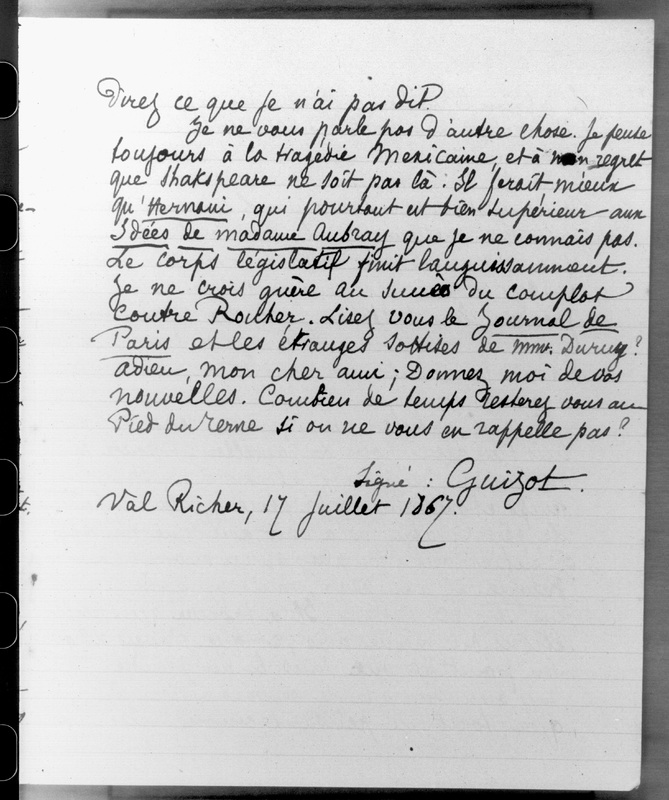 Direz ce que je n'ai pas dit.
Je ne vous parle pas d'autre chose. Je pense
toujours à la tragédie Mexicaine, et à mon regret
que Shakspeare ne soit pas là. Il ferait mieux
qu'Hernani, qui pourtant est bien supérieur aux
Idées de madame Aubray que je ne connais pas.
Le corps législatif finit languissamment.
Je ne crois guère au succès du complot
contre Rouher. Lisez vous le Journal de
Paris et les étranges sottises de Duruy?
adieu, mon cher ami; Donnez moi de vos
nouvelles. Combien de temps resterez vous au
Pied du Terne si on ne vous en rappelle pas?
Signé : Guizot.
Val Richer, 17 Juillet 1867.